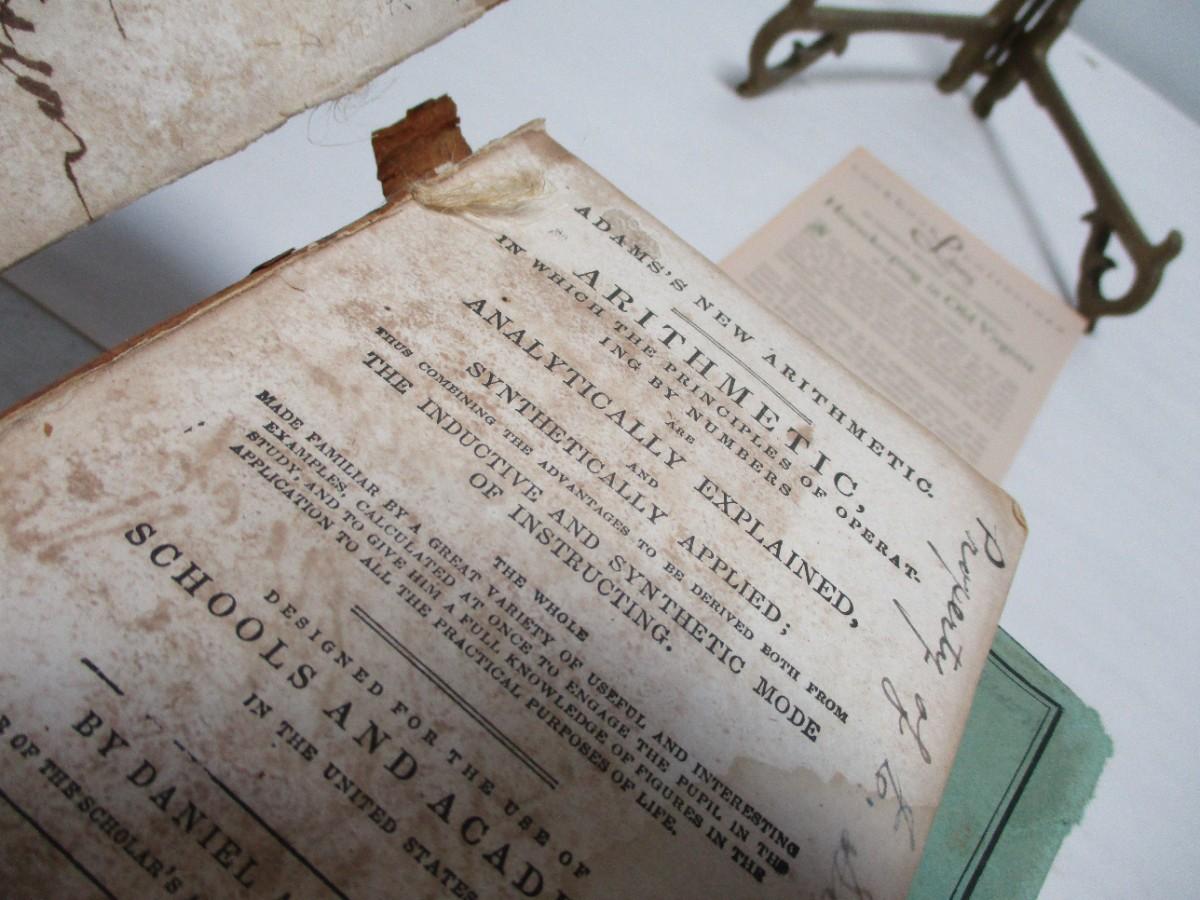 ADAMS'S NEW ARITHMETIC.
ARITHMETIC,
IN WHICH THE PRINCIPLES OF OPERAT-
ING BY NUMBERS
ARE
ANALYTICALLY EXPLAINED,
AND
SYNTHETICALLY APPLIED;
THUS COMBINING THE ADVANTAGES TO BE DERIVED BOTH FROM
THE INDUCTIVE AND SYNTHETIC MODE
OF INSTRUCTING.
THE WHOLE
MADE FAMILIAR BY A GREAT VARIETY OF USEFUL AND INTERESTING
EXAMPLES, CALCULATED AT ONCE TO ENGAGE THE PUPIL IN THE
STUDY, AND TO GIVE HIM A FULL KNOWLEDGE OF FIGURES IN THEIR
APPLICATION TO ALL THE PRACTICAL PURPOSES OF LIFE.
DESIGNED FOR THE USE OF
SCHOOLS AND ACAD
IN THE UNITED STATES
BY DANIEL A
R OF THE SCHOLAR'S
Property of
Housekeeping in Old Virginia